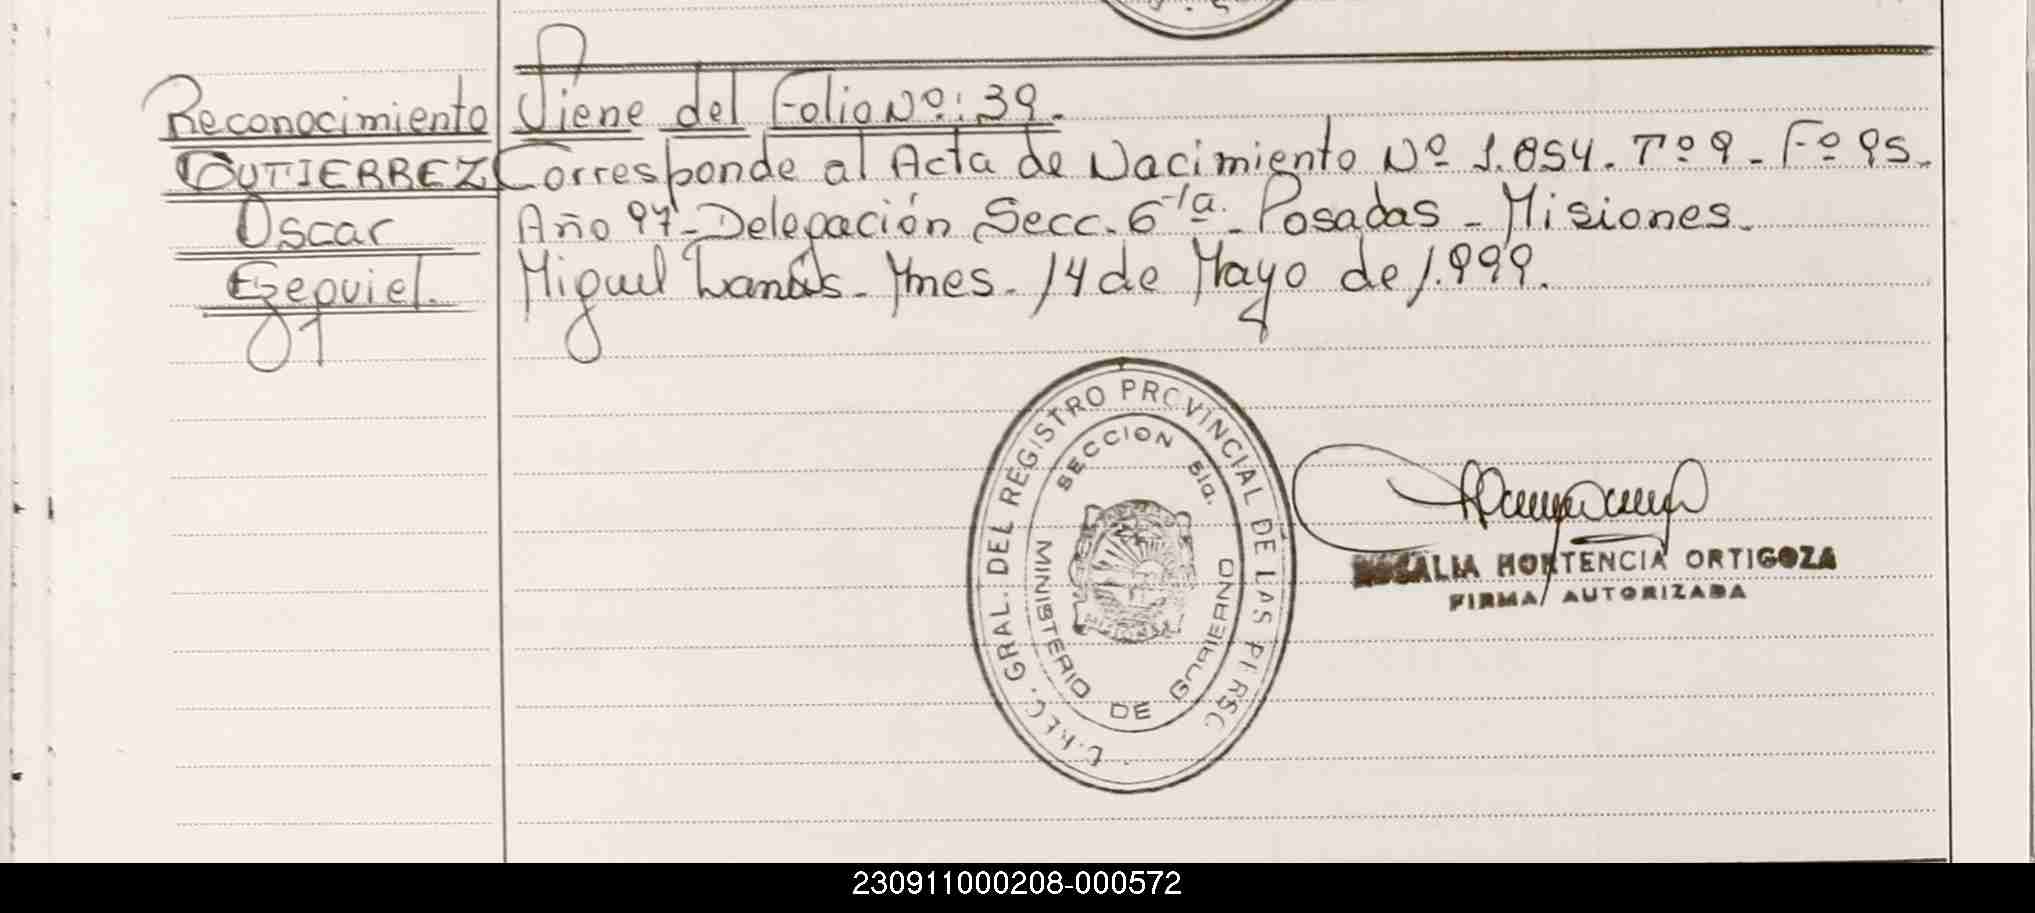 Reconocimiento
GUTIERREZ
Oscar
Ezequiel.
Viene del Folio Nº: 39.
Corresponde al Acta de Nacimiento Nº 1.054. Tº 9 - Fº 95.
Año 97 - Delegación Secc. 6ª - Posadas - Misiones.
Miguel Lanús - Mnes. 14 de Mayo de 1.999.
GRAL. DEL REGISTRO PROVINCIAL DE LAS PERS
SECCION 5ta.
MINISTERIO DE GOBIERNO
MISIONES
ROSALIA HORTENCIA ORTIGOZA
FIRMA AUTORIZADA
230911000208-000572